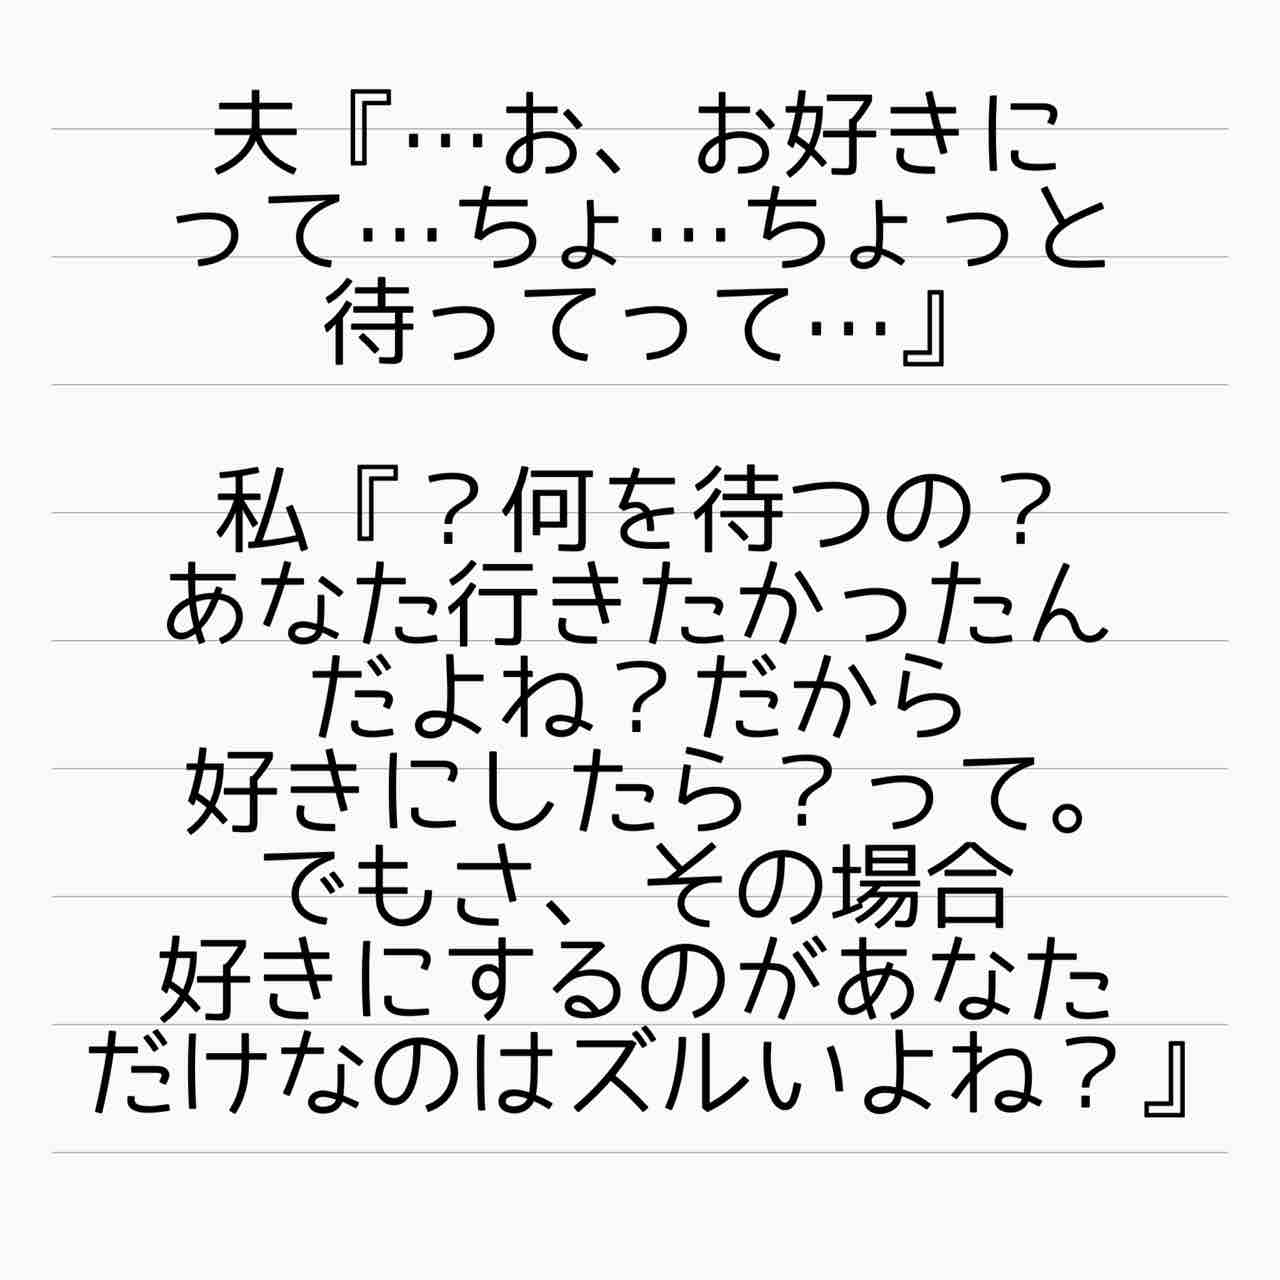 夫『…お、お好きに
って…ちょ…ちょっと
待ってって…』
私『？何を待つの？
あなた行きたかったん
だよね？だから
好きにしたら？って。
でもさ、その場合
好きにするのがあなた
だけなのはズルいよね？』